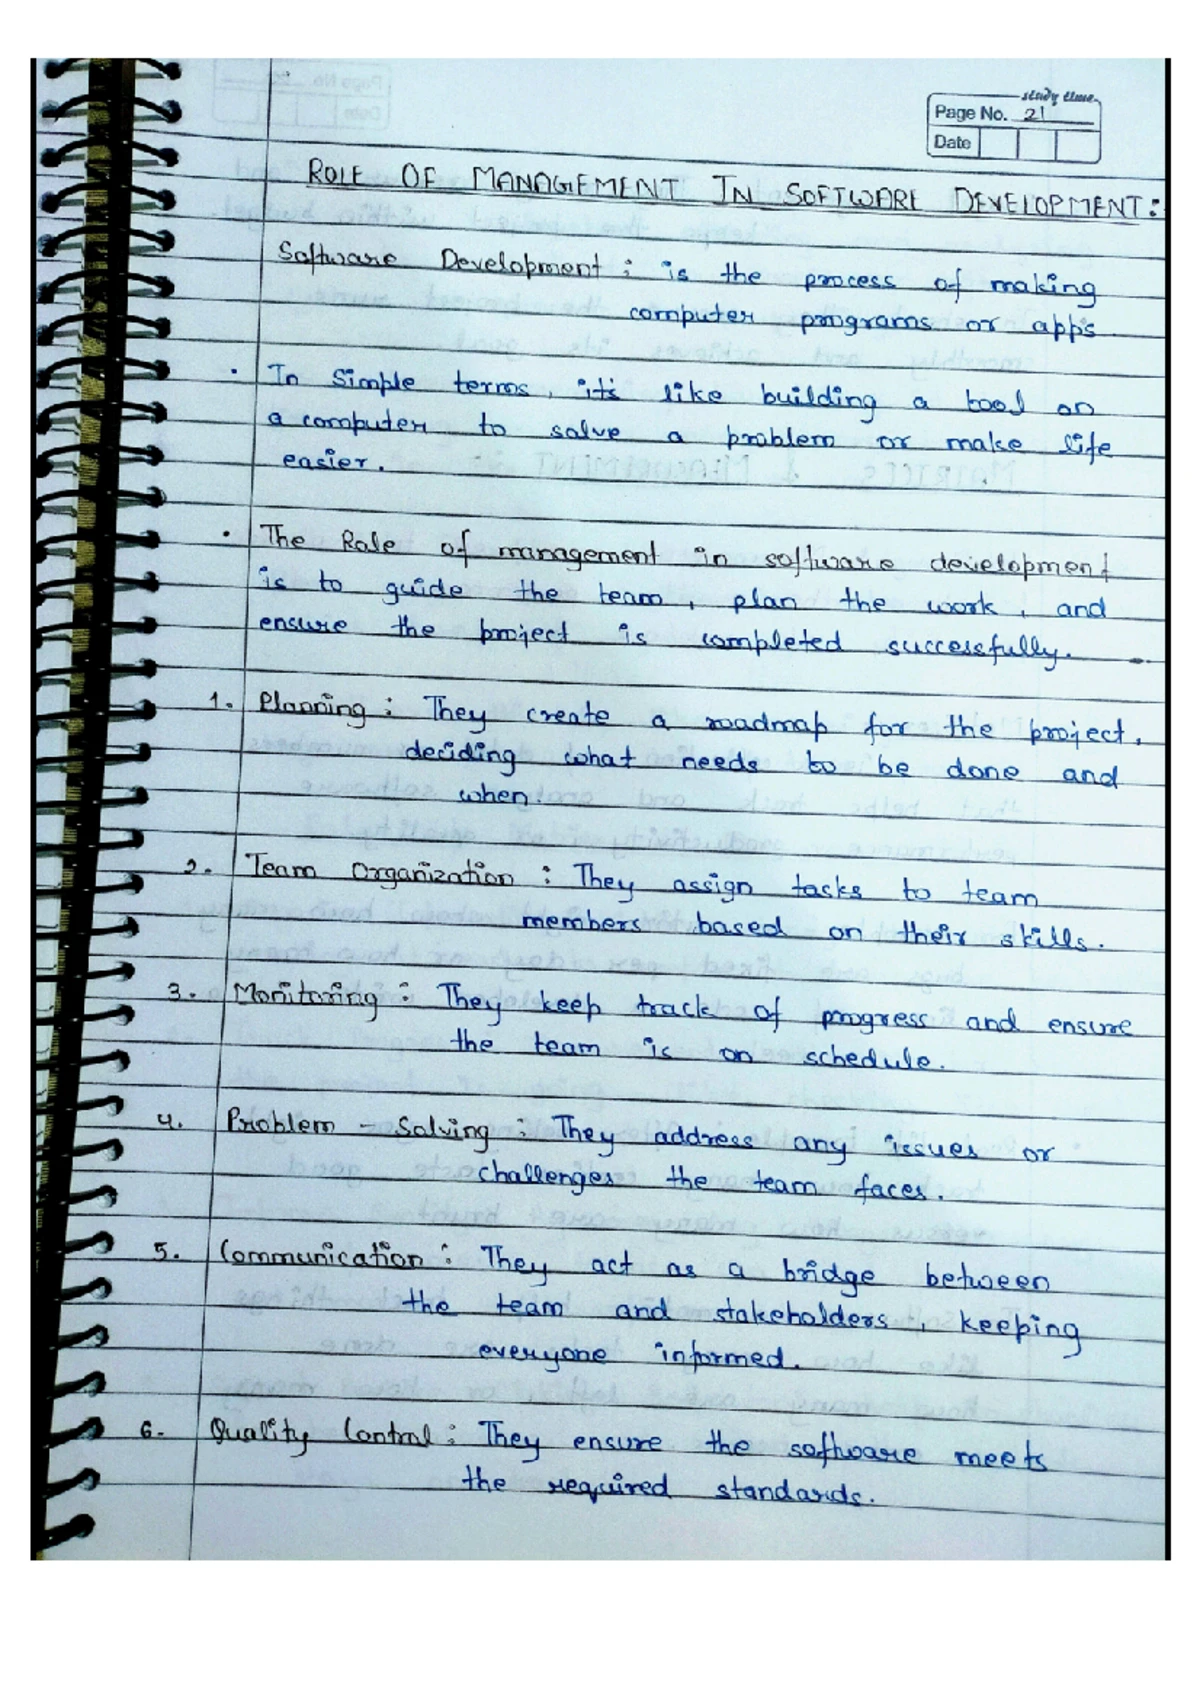 study time
Page No. 21
Date
ROLE OF MANAGEMENT IN SOFTWARE DEVELOPMENT:
Software Development : is the process of making
computer programs or apps
• In Simple terms, it's like building a tool on
a computer to solve a problem or make life
easier.
• The Role of management in software development
is to guide the team, plan the work, and
ensure the project is completed successfully.
1. Planning : They create a roadmap for the project,
deciding what needs to be done and
when.
2. Team Organization : They assign tasks to team
members based on their skills.
3. Monitoring : They keep track of progress and ensure
the team is on schedule.
4. Problem - Solving : They address any issues or
challenges the team faces.
5. Communication : They act as a bridge between
the team and stakeholders, keeping
everyone informed.
6. Quality Control : They ensure the software meets
the required standards.